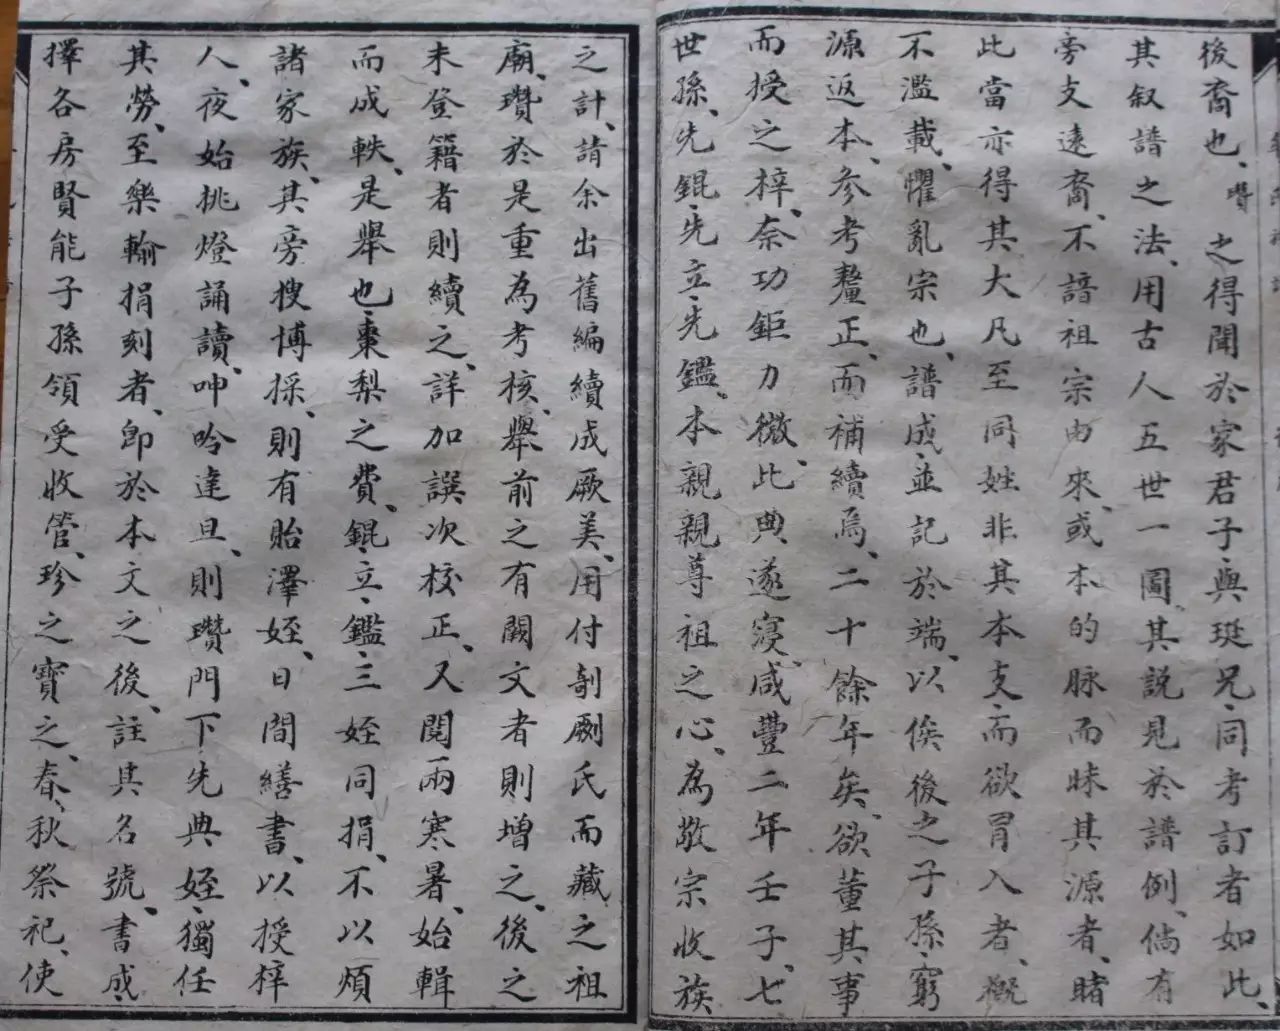 後裔也、瓚之得聞於家君子、與珽兄、同考訂者如此、
其叙譜之法、用古人五世一圖、其説見於譜例、倘有
旁支遠裔、不諳祖宗由來、或本的脉而昧其源者、睹
此當亦得其大凡至同姓非其本支、而欲冒入者、概
不濫載、懼亂宗也、譜成、並記於端、以俟後之子孫、窮
源返本、參考釐正、而補續焉、二十餘年矣、欲董其事
而授之梓、奈功鉅力微、此典遂寝、咸豐二年壬子、七
世孫、先錕、先立、先鑑、本親親尊祖之心、為敬宗收族
之計、請余出舊編續成厥美、用付剞劂氏而藏之祖
廟、瓚於是重為考核、舉前之有闕文者則增之、後之
未登籍者則續之、詳加譔次校正、又閱兩寒暑、始輯
而成軼、是舉也、棗梨之費、錕、立、鑑、三姪同捐、不以煩
諸家族、其旁搜博採、則有貽澤姪、日間繕書、以授梓
人、夜始挑燈誦讀、呻吟達旦、則瓚門下先典姪、獨任
其勞、至樂輸捐刻者、即於本文之後、註其名號、書成、
擇各房賢能子孫領受收管、珍之寶之、春、秋祭祀、使